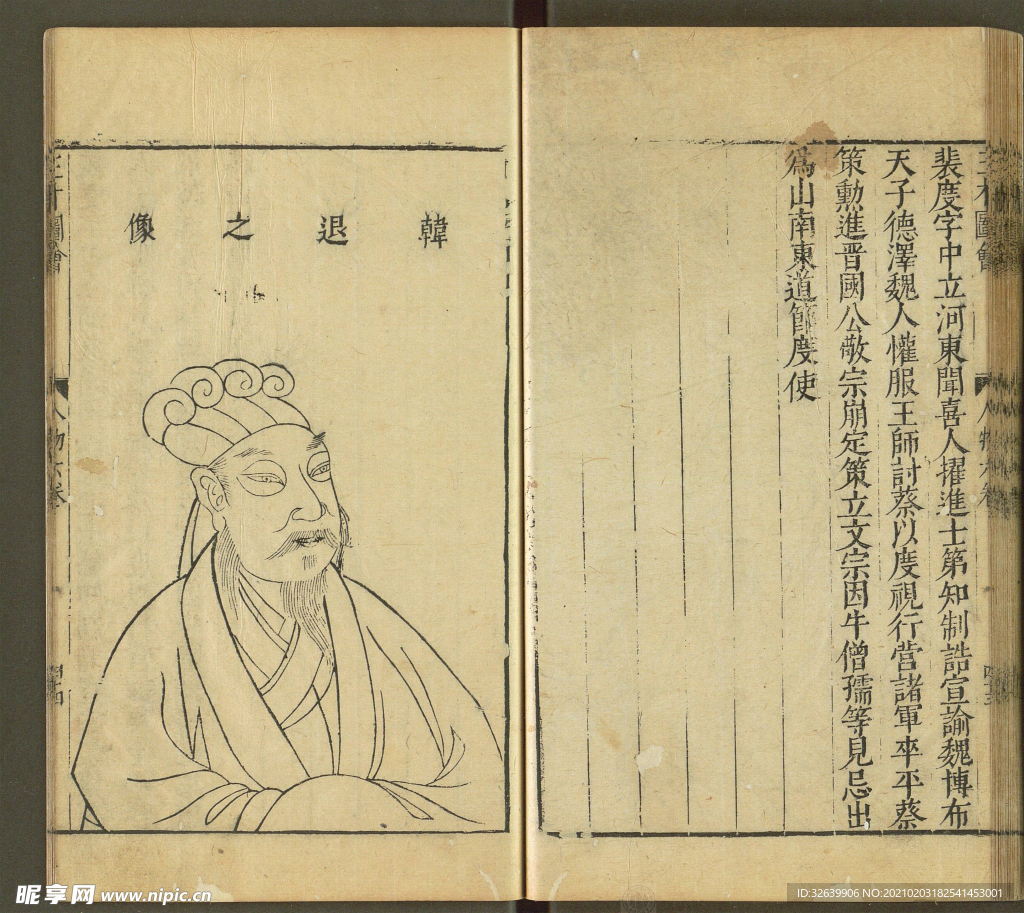 三才圖會
裴度字中立河東聞喜人擢進士第知制誥宣諭魏博布
天子德澤魏人懽服王師討蔡以度視行營諸軍卒平蔡
策勳進晋國公敬宗崩定策立文宗因牛僧孺等見忌出
爲山南東道節度使
韓退之像
三才圖會
人物六卷
昵享网 www.nipic.cn
ID:32639906 NO:20210203182541453001